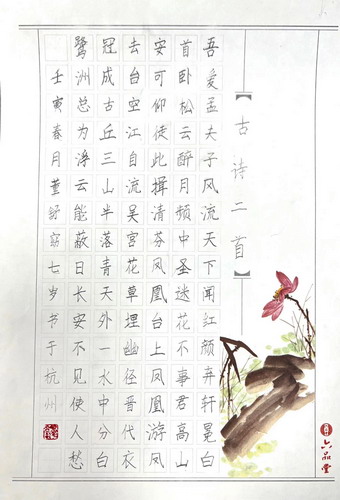 【古诗二首】
吾爱孟夫子风流天下闻红颜弃轩冕白
首卧松云醉月频中圣迷花不事君高山
安可仰徒此揖清芬凤凰台上凤凰游凤
去台空江自流吴宫花草埋幽径晋代衣
冠成古丘三山半落青天外一水中分白
鹭洲总为浮云能蔽日长安不见使人愁
壬寅春月董七岁书于杭州
六品堂